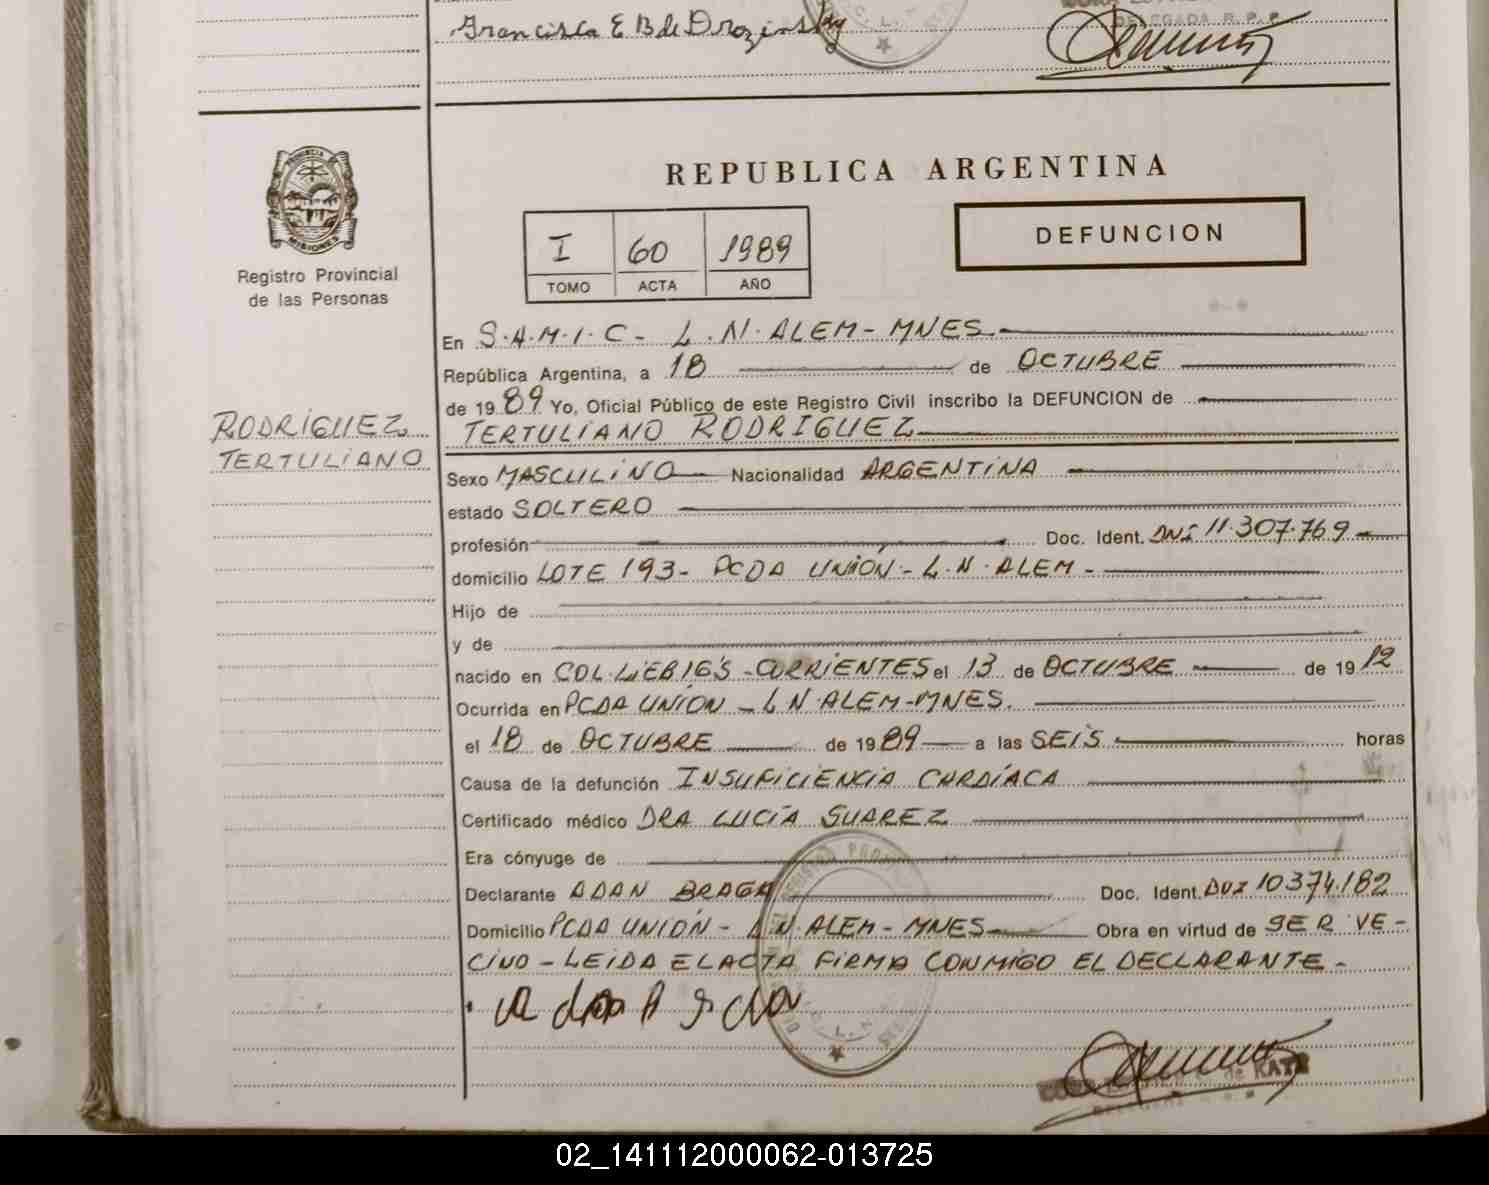 Francisca E B de Drozinsky
DELEGADA R.P.P.
PROVINCIA DE
MISIONES
Registro Provincial
de las Personas
REPUBLICA ARGENTINA
I 60 1989
TOMO ACTA AÑO
DEFUNCION
En S.A.M.I.C- L.N.ALEM- MNES.
República Argentina, a 18 de OCTUBRE
de 1989 Yo, Oficial Público de este Registro Civil inscribo la DEFUNCION de
RODRIGUEZ
TERTULIANO
TERTULIANO RODRIGUEZ
Sexo MASCULINO Nacionalidad ARGENTINA
estado SOLTERO
profesión Doc. Ident. DNI 11.307.769
domicilio LOTE 193- PCDA UNIÓN- L.N.ALEM-
Hijo de
y de
nacido en COL.LIEBIG'S-CORRIENTES el 13 de OCTUBRE de 1912
Ocurrida en PCDA UNION - L N.ALEM-MNES.
el 18 de OCTUBRE de 1989 a las SEIS horas
Causa de la defunción INSUFICIENCIA CARDÍACA
Certificado médico DRA LUCÍA SUAREZ
Era cónyuge de
Declarante ADAN BRAGA Doc. Ident. DNI 10374.182
Domicilio PCDA UNIÓN - L.N.ALEM- MNES Obra en virtud de SER VE-
CINO - LEIDA EL ACTA FIRMA CONMIGO EL DECLARANTE-
02_141112000062-013725